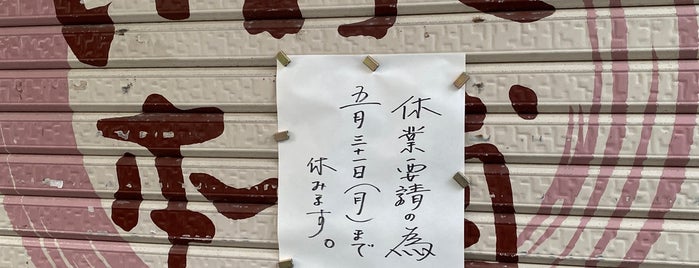 休業要請の為
五月三十一日(月)まで
休みます。